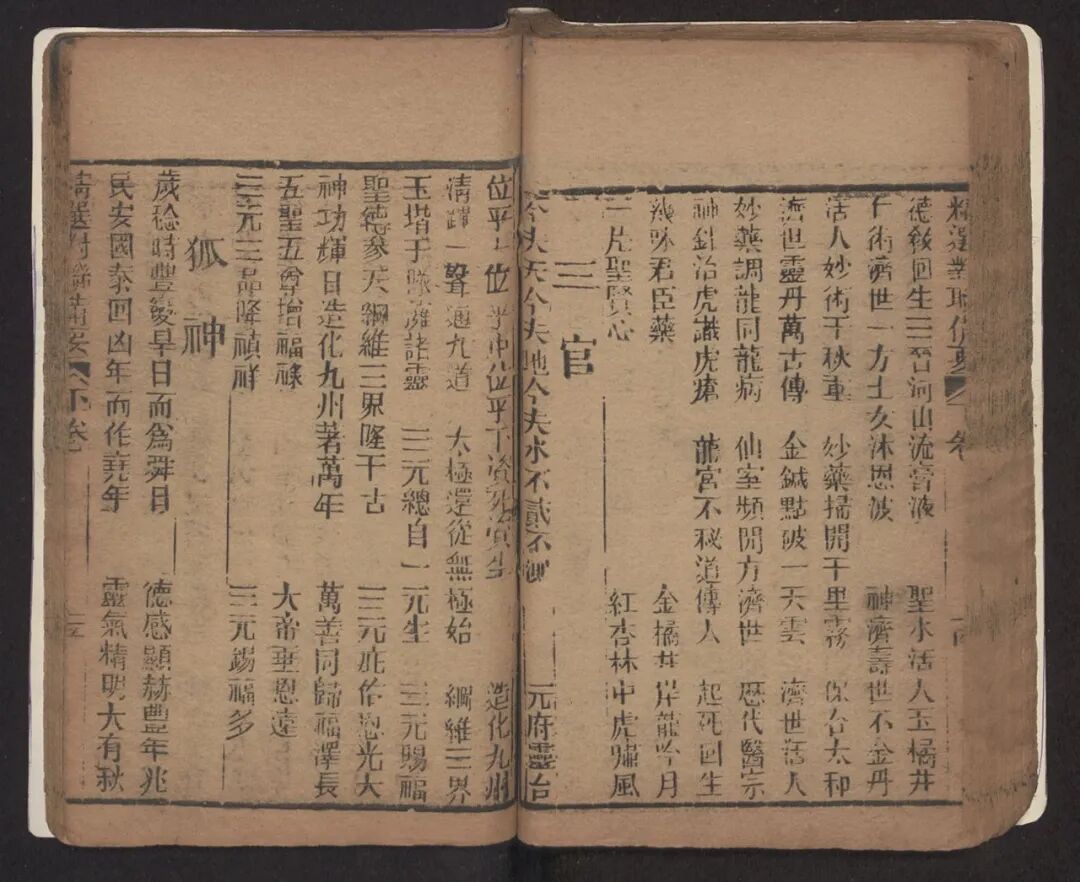 精選對聯備要 下卷
德敘回生三晉河山流膏液 聖水活人玉橘井
仁術濟世一方士女沐恩波 神濟壽世不金丹
活人妙術千秋重 妙藥掃開千里霧 保合太和
濟世靈丹萬古傳 金鍼點破一天雲 濟世活人
妙藥調龍同龍病 仙室頻開方濟世 歷代醫宗
神針治虎識虎瘡 龍宮不秘道傳人 起死回生
味君臣藥 金橘井岸龍吟月
一片聖賢心 紅杏林中虎嘯風
三官
天 地 水不貳不 元府靈台
位乎上位乎中位乎下資 造化九州
清躍一聲通九道 太極還從無極始 綱維三界
玉堦于 諸靈 三元總自一元生 三元賜福
聖德參天綱維三界隆千古 三元 恩光大
神功輝日造化九州著萬年 萬善同歸福澤長
五聖五尊增福祿 大帝垂恩遠
三元三品降禎祥 三元錫福多
狐神
歲稔時豐變旱日而為舜日 德感顯赫豐年兆
民安國泰回凶年而作堯年 靈氣精明大有秋
精選對聯備要 下卷